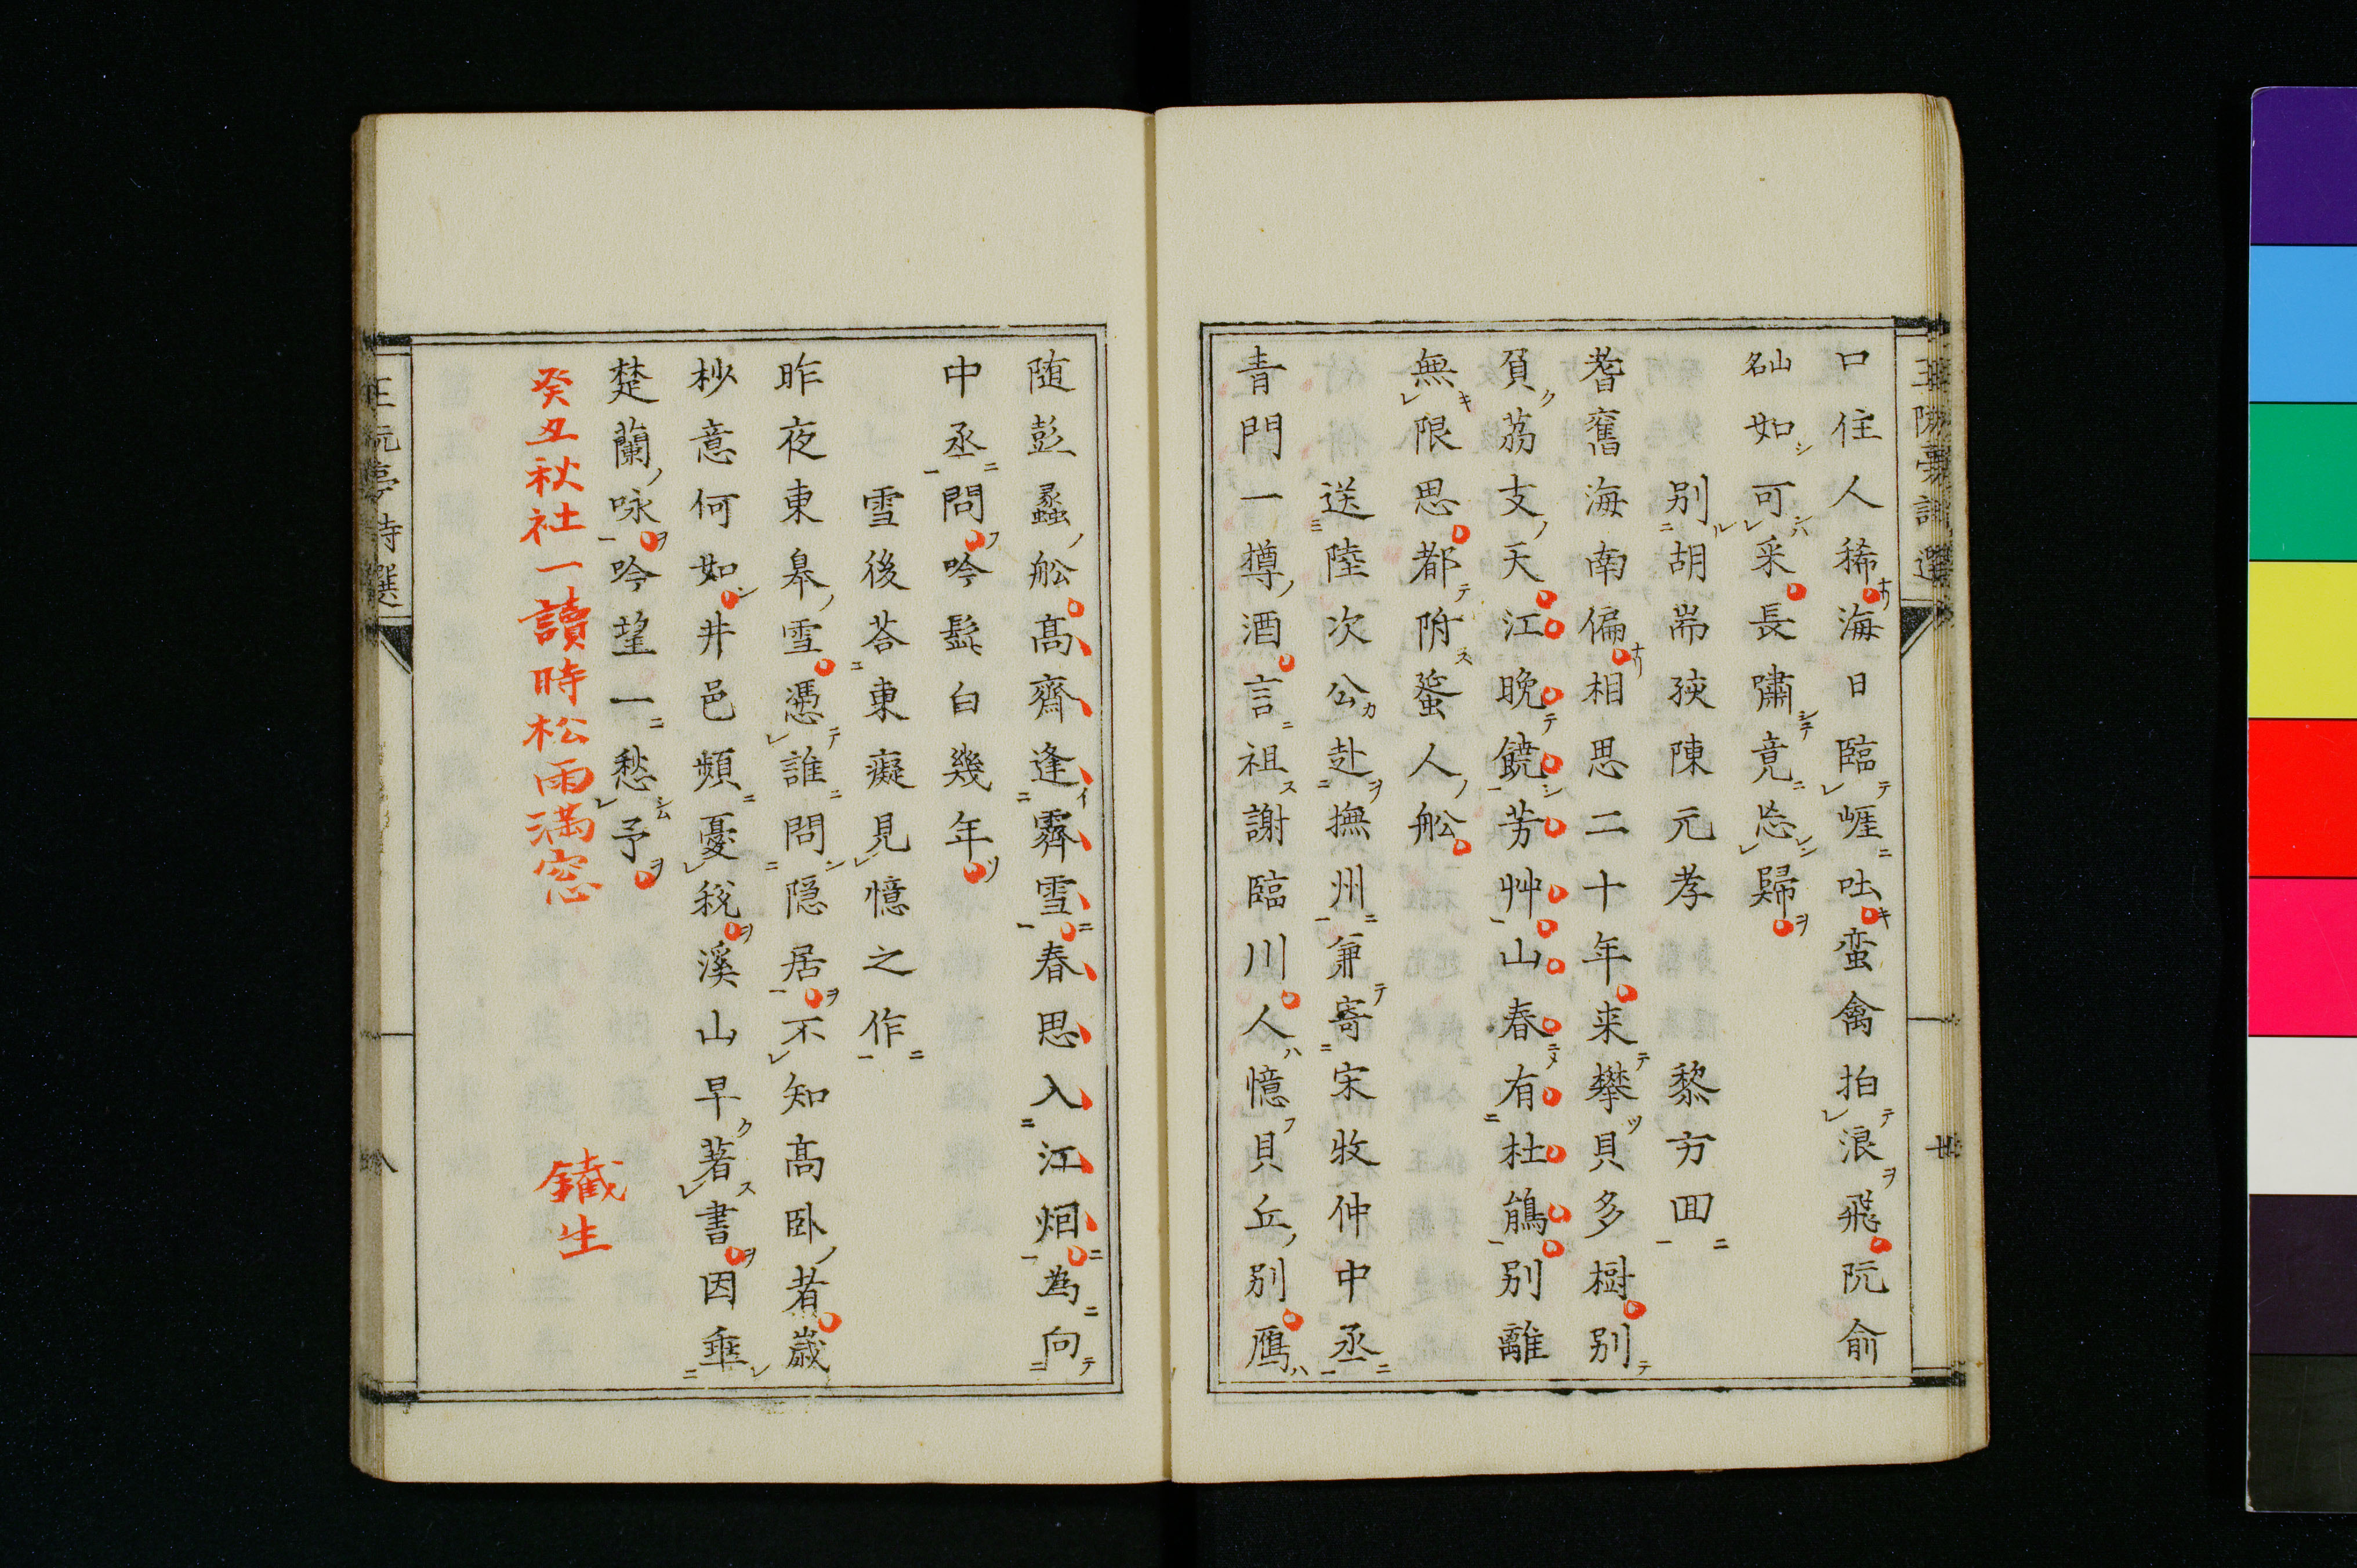 口住人稀海日臨崕吐蛮禽拍浪飛阮俞
如可采長嘯竟忘歸
別胡耑孩陳元孝黎方回
耆舊海南偏相思二十年来攀貝多樹別
負茘支天江晚饒芳艸山春有杜鵑別離
無限思都附蜑人舩
送陸次公赴撫州兼寄宋牧仲中丞
青門一樽酒言祖謝臨川人憶貝丘別鴈
随彭蠡舩髙齋逢霽雪春思入江烟為向
中丞問吟髭白幾年
雪後荅東癡見憶之作
昨夜東皐雪憑誰問隠居不知髙卧者歳
杪意何如井邑頻憂税溪山早著書因垂
楚蘭咏吟望一愁予
癸丑秋社一讀時松雨滿窓
鐵生